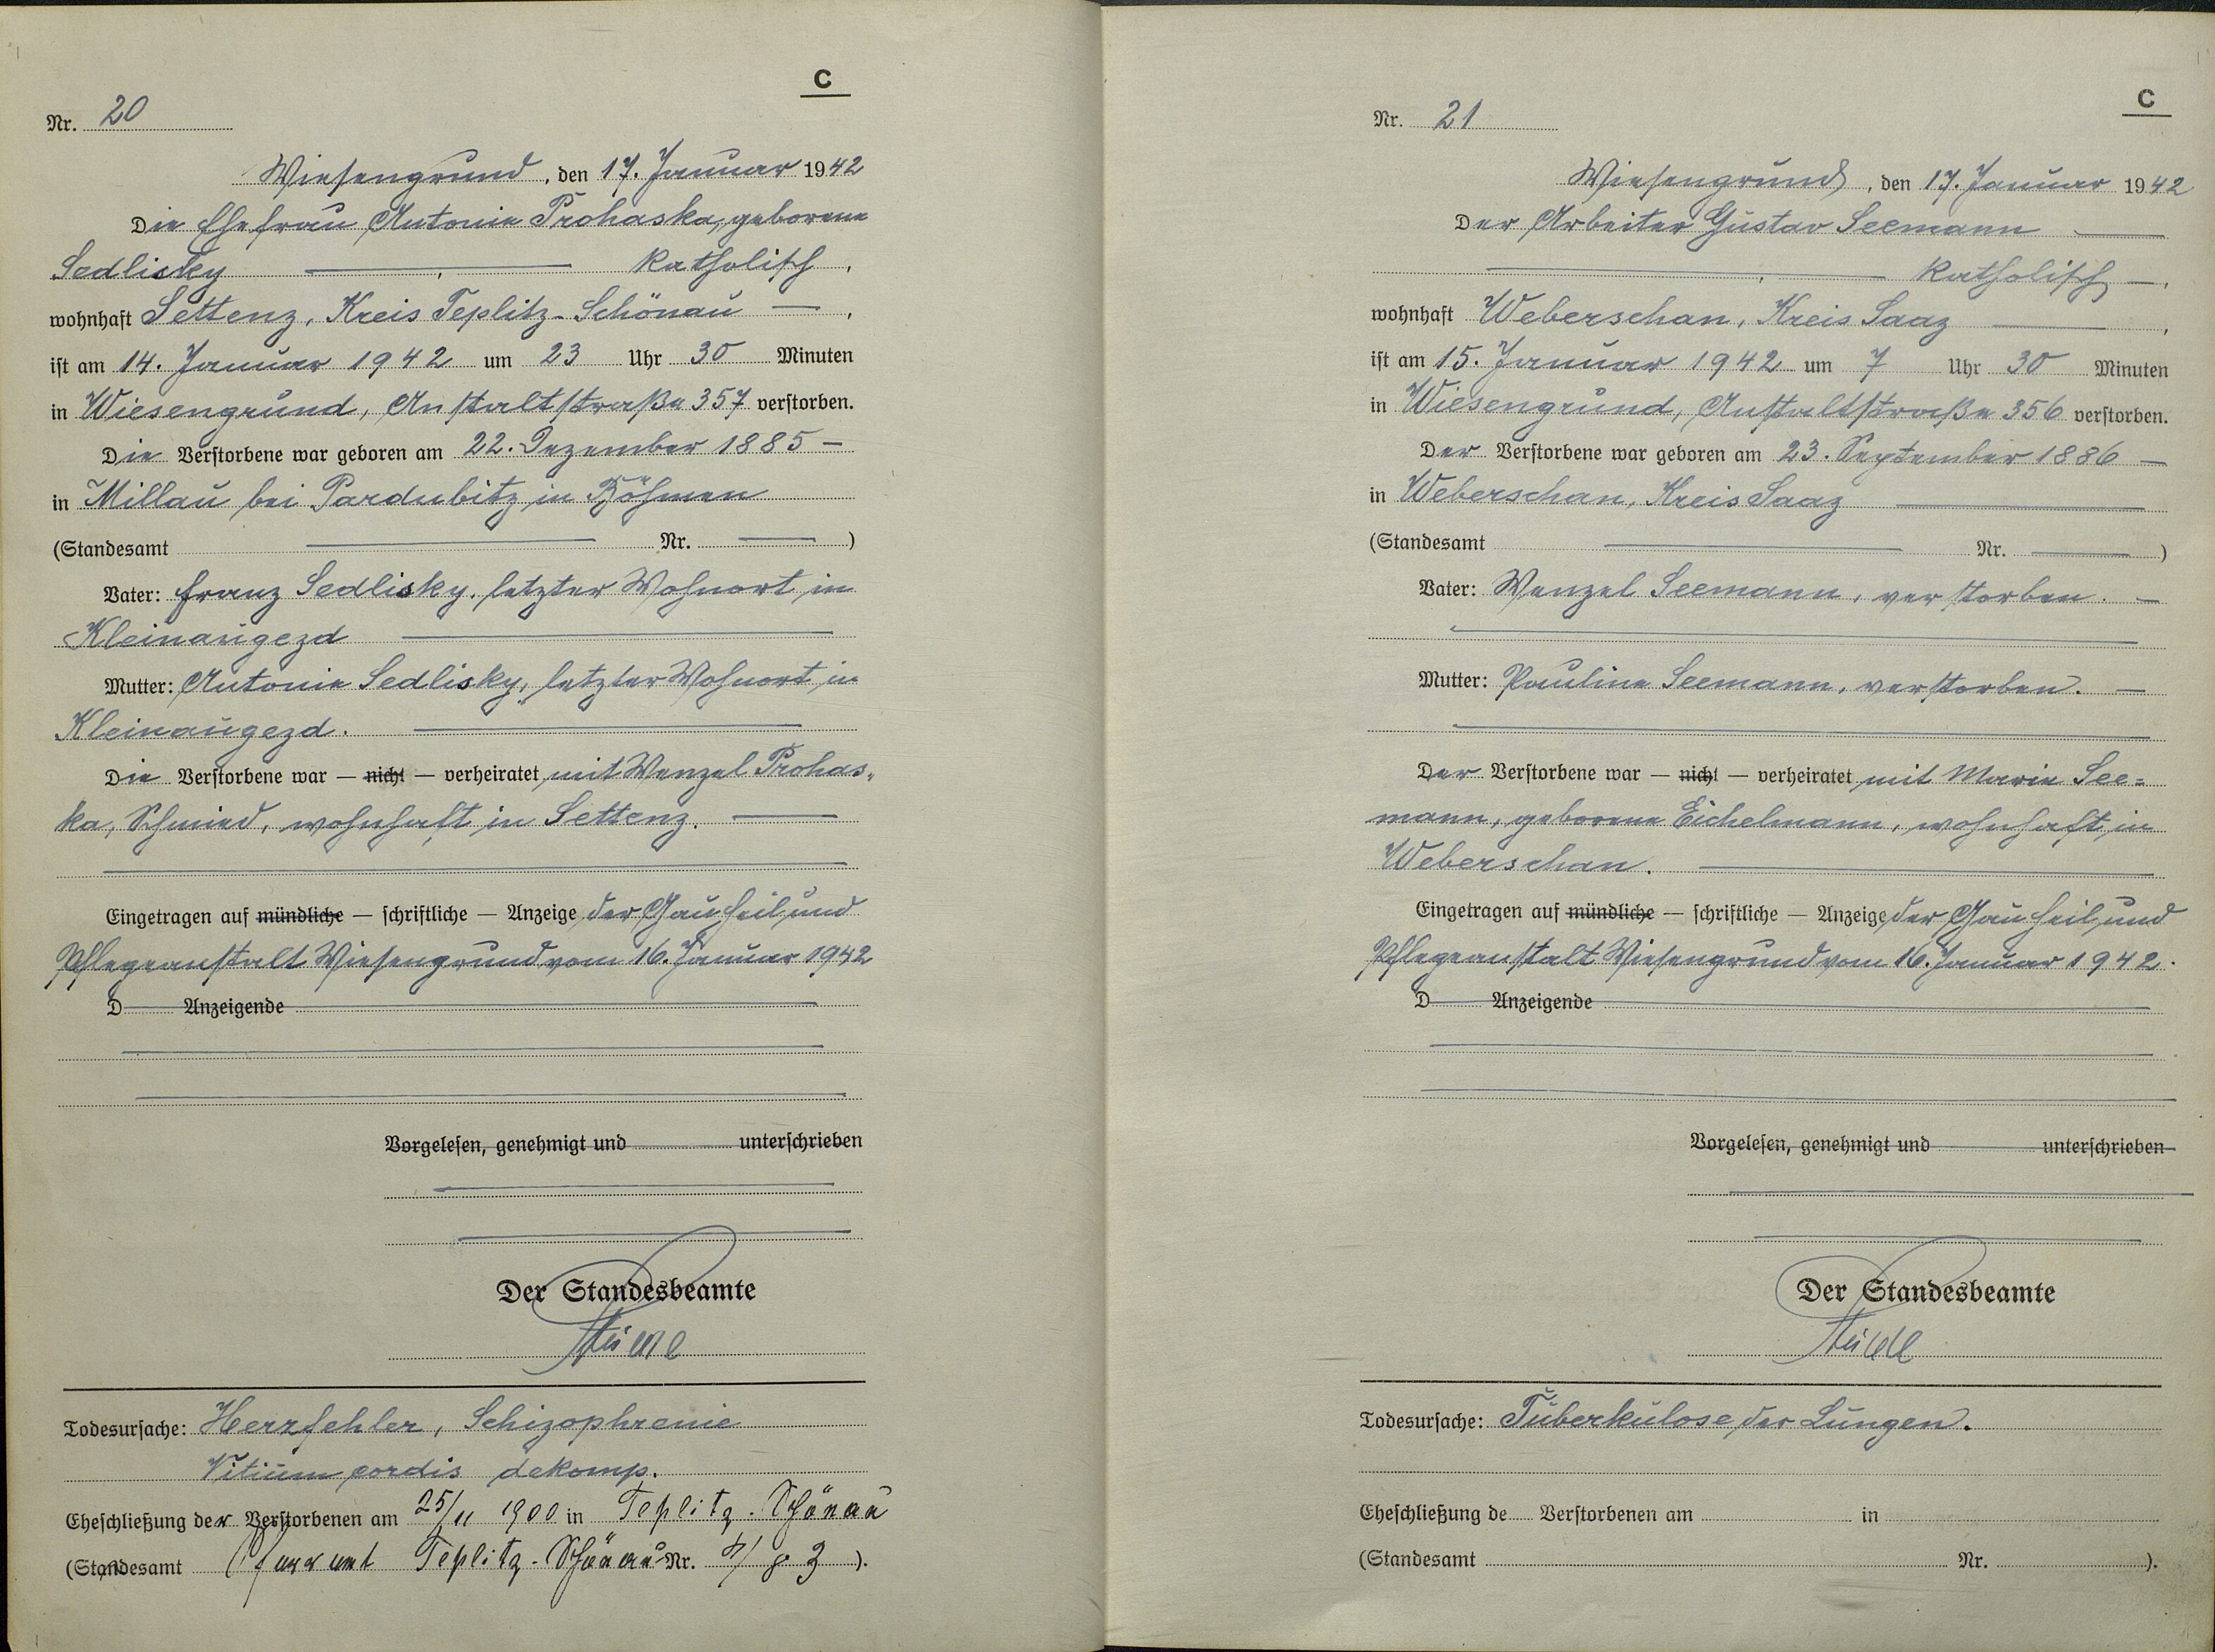 C
Nr. 20
Wiesengrund, den 17. Januar 1942
Die Ehefrau Antonie Prohaska, geborene
Sedlisky — katholisch,
wohnhaft Settenz, Kreis Teplitz-Schönau —,
ist am 14. Januar 1942 um 23 Uhr 30 Minuten
in Wiesengrund, Anstaltstraße 357 verstorben.
Die Verstorbene war geboren am 22. Dezember 1885 —
in Millau bei Pardubitz in Böhmen
(Standesamt — Nr. —)
Vater: Franz Sedlisky, letzter Wohnort in
Kleinaugezd —
Mutter: Antonie Sedlisky, letzter Wohnort in
Kleinaugezd. —
Die Verstorbene war — nicht — verheiratet mit Wenzel Prohas-
ka, Schmied, wohnhaft in Settenz. —
Eingetragen auf mündliche — schriftliche — Anzeige der Gau Heil und
Pflegeanstalt Wiesengrund vom 16. Januar 1942
D Anzeigende
Vorgelesen, genehmigt und unterschrieben
Der Standesbeamte
Todesursache: Herzfehler, Schizophrenie
Vitium cordis dekomp.
Eheschließung der Verstorbenen am 25/11 1900 in Teplitz-Schönau
(Standesamt Pfarramt Teplitz-Schönau Nr. 3).
C
Nr. 21
Wiesengrund, den 17. Januar 1942
Der Arbeiter Gustav Seemann —
— katholisch —,
wohnhaft Weberschan, Kreis Saaz —,
ist am 15. Januar 1942 um 7 Uhr 30 Minuten
in Wiesengrund, Anstaltstraße 356 verstorben.
Der Verstorbene war geboren am 23. September 1886 —
in Weberschan, Kreis Saaz —
(Standesamt — Nr. —)
Vater: Wenzel Seemann, verstorben. —
Mutter: Pauline Seemann, verstorben. —
Der Verstorbene war — nicht — verheiratet mit Marie See=
mann, geborene Eichelmann, wohnhaft in
Weberschan. —
Eingetragen auf mündliche — schriftliche — Anzeige der Gau Heil und
Pflegeanstalt Wiesengrund vom 16. Januar 1942.
D Anzeigende
Vorgelesen, genehmigt und unterschrieben
Der Standesbeamte
Todesursache: Tuberkulose der Lungen.
Eheschließung de Verstorbenen am in
(Standesamt Nr. ).